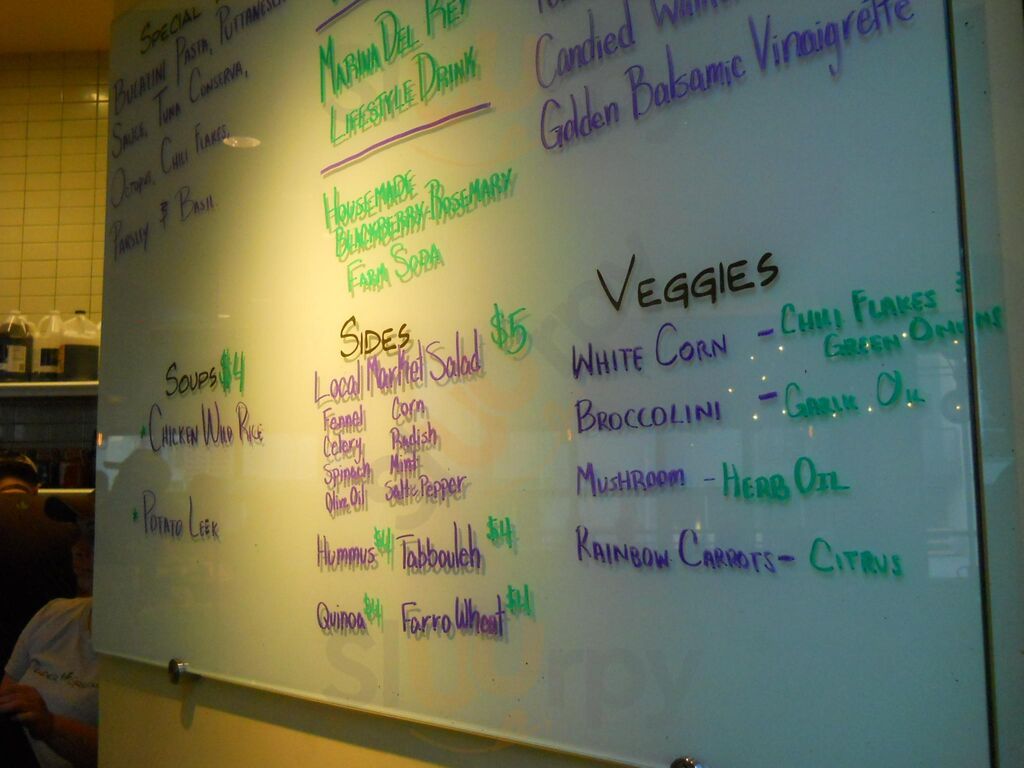 Special
Bucatini Pasta, Puttanesca
Sauce, Tuna Conserva,
Octopus, Chili Flakes,
Parsley & Basil
Marina Del Rey
Lifestyle Drink
Housemade
Blackberry-Rosemary
Farm Soda
Candied Walnuts
Golden Balsamic Vinaigrette
Soups $4
* Chicken Wild Rice
* Potato Leek
Sides
Local Market Salad $5
Fennel Corn
Celery Radish
Spinach Mint
Olive Oil Salt & Pepper
Hummus $4 Tabbouleh $4
Quinoa $4 Farro Wheat $4
Veggies
White Corn - Chili Flakes &
Green Onions
Broccolini - Garlic Oil
Mushroom - Herb Oil
Rainbow Carrots - Citrus
slurpy